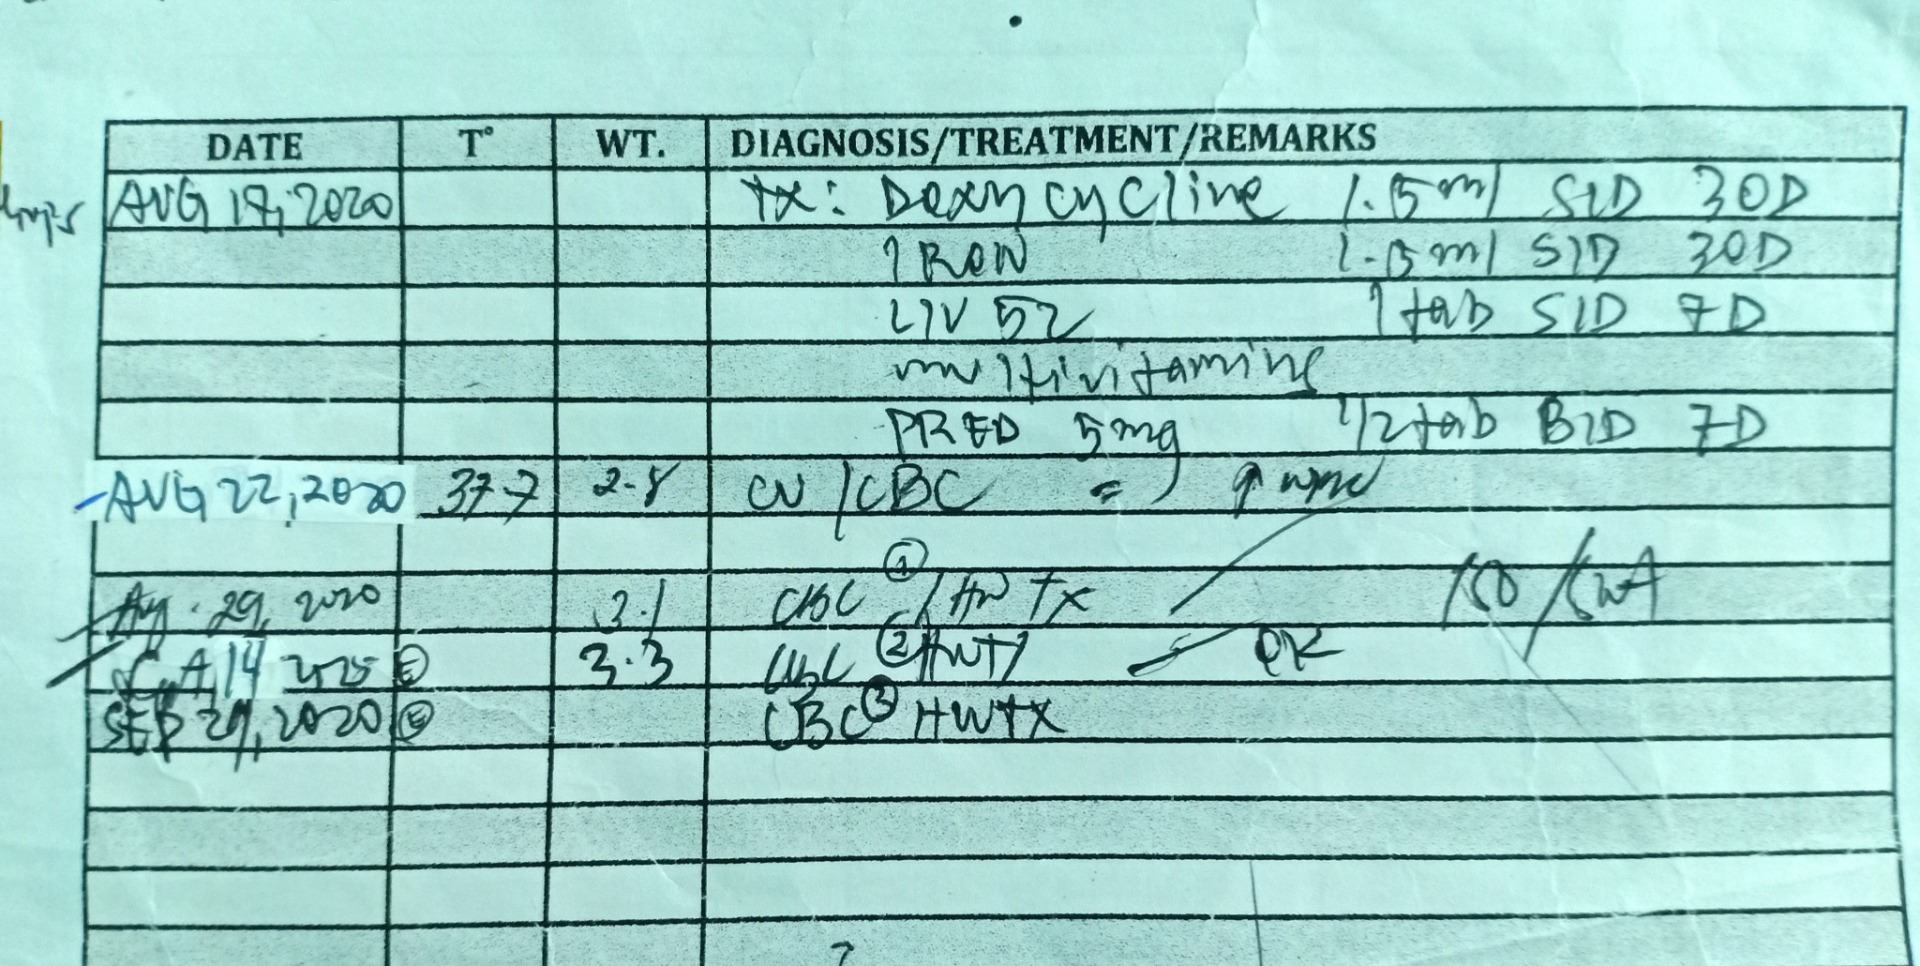 DATE T° WT. DIAGNOSIS/TREATMENT/REMARKS
AUG 17, 2020 tx: Doxycycline 1.5ml SID 30D
IRON 1.5ml SID 30D
LIV 52 1 tab SID 7D
multivitamins
PRED 5mg 1/2 tab BID 7D
AUG 22, 2020 37.7 2.8 CBC = ↑
29, 2020 3.1 CBC ① / HW TX
14 3.3 CBC ② HWTX OK
SEP 29, 2020 CBC ③ HWTX